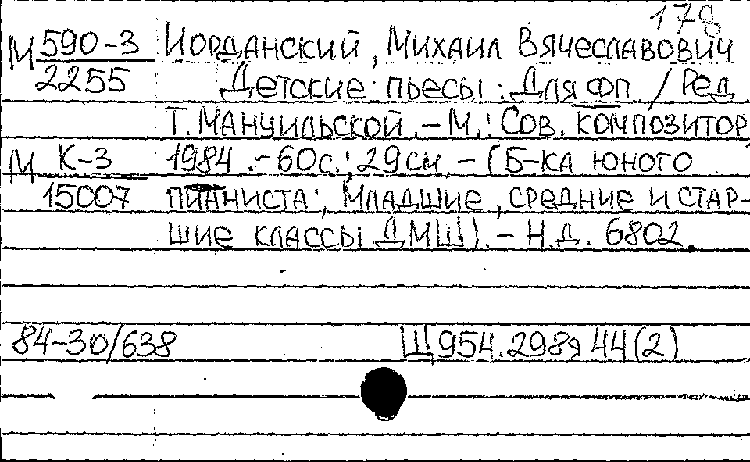 178
М 590-3 Иорданский, Михаил Вячеславович
2255 Детские пьесы: Для фп. / Ред.
Т. Мануильской. – М.: Сов. композитор,
М К-3 1984. – 60 с.; 29 см. – (Б-ка юного
15007 пианиста; Младшие, средние и стар-
шие классы ДМШ). – Н.д. 6802.
84-30/638 Щ954.2989 44(2)